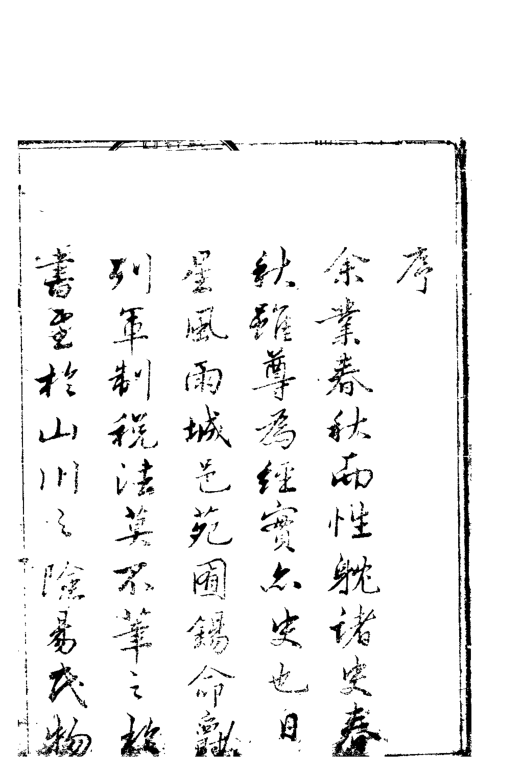 序
余業春秋而性躭諸史春
秋雖尊為經實亦史也日
星風雨城邑苑囿錫命
列軍制稅法莫不筆之於
書至於山川之險易民物